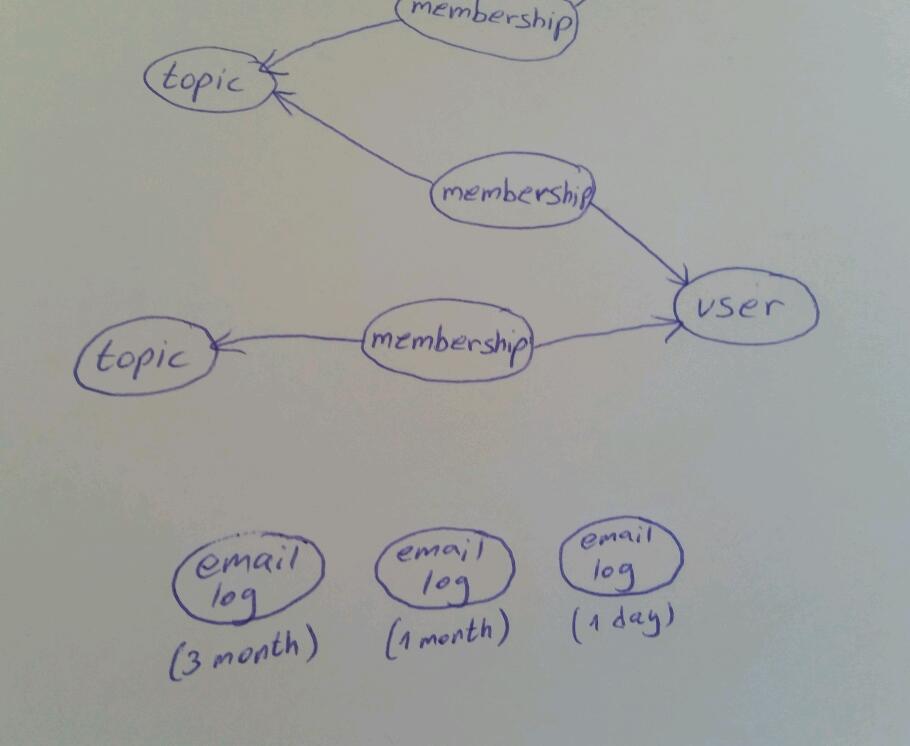 membership
topic
membership
user
topic
membership
email
log
(3 month)
email
log
(1 month)
email
log
(1 day)